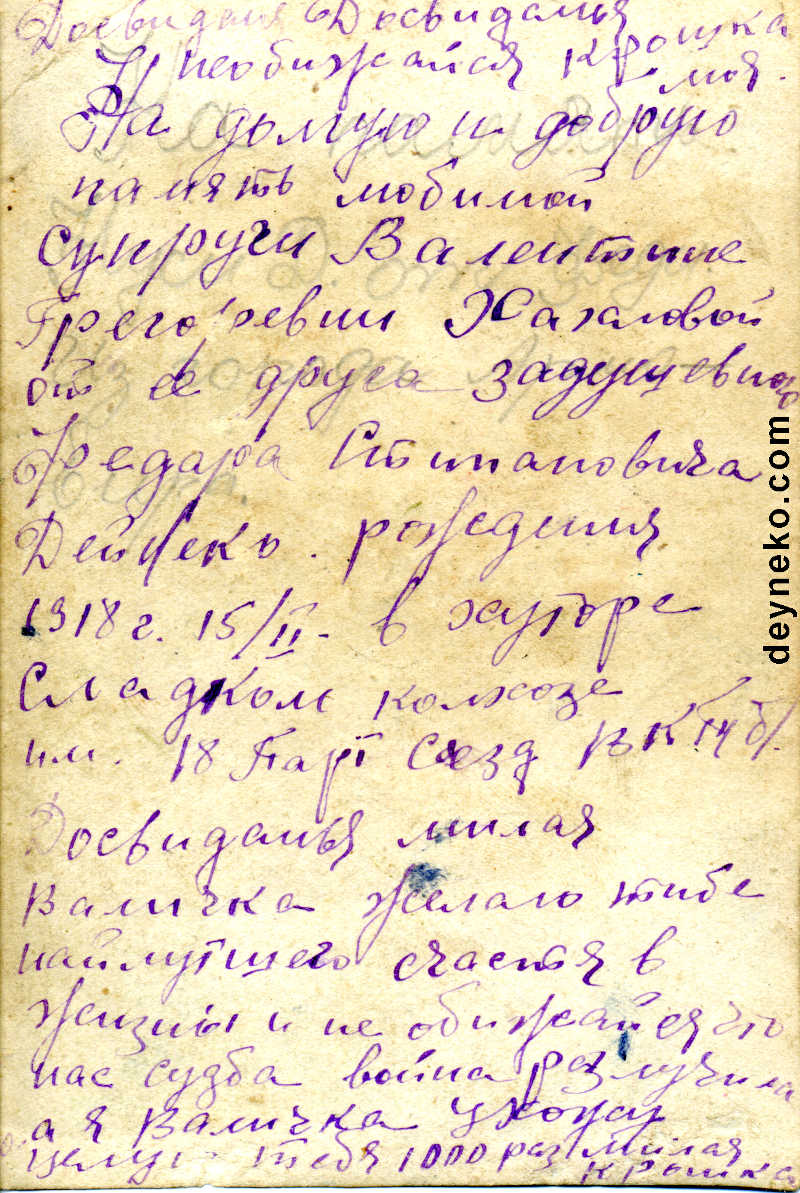 Досвиданя Досвиданья
И необижайся крошка
моя.
На долгую и добрую
память любимой
Супруги Валентине
Грегорьевни Хахловой
от ее друга задушевного
Федара Стипановича
Дейнеко. рождения
1918 г. 15/II - в хуторе
Сладком колхозе
им. 18 Парт Сезд ВКП(б).
Досвиданья милая
Валичка желаю тибе
найлутшего счастя в
жизны и не обижайся что
нас судба война разлучила
а я Валичка ухожу
целую тебя 1000 раз милая
крошка
deyneko.com